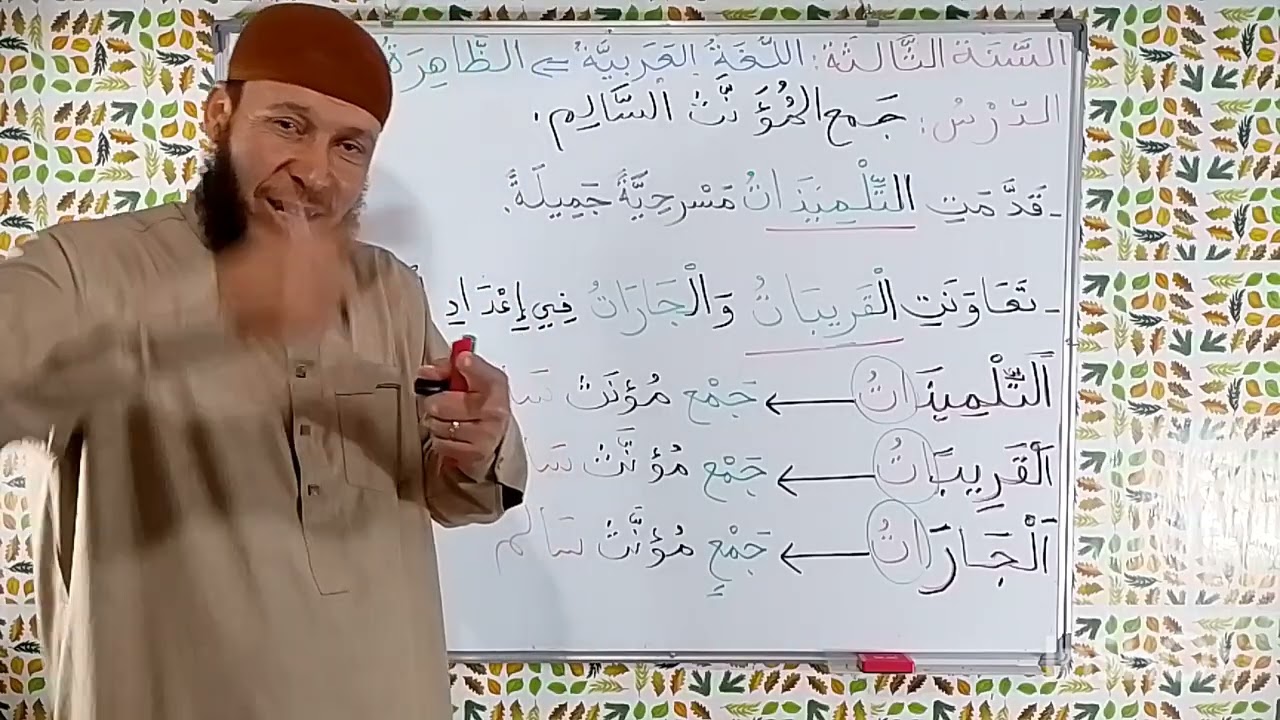 السَّنَة الثَّالِثَة: اللُّغَةُ العَرَبِيَّةُ ⇐ الظَّاهِرَةُ
الدَّرْسُ: جَمع المُؤَنَّث السَّالِم.
- قَدَّمَتِ التِّلْمِيذَاتُ مَسْرَحِيَّةً جَمِيلَةً.
- تَعَاوَنَتِ الْقَرِيبَاتُ وَالْجَارَاتُ فِي إِعْدَادِ
اَلتِّلْمِيذَاتُ ← جَمْع مُؤنَث
اَلْقَرِيبَاتُ ← جَمْع مُؤنَّث
اَلْجَارَاتُ ← جَمْع مُؤنَّث سَالم